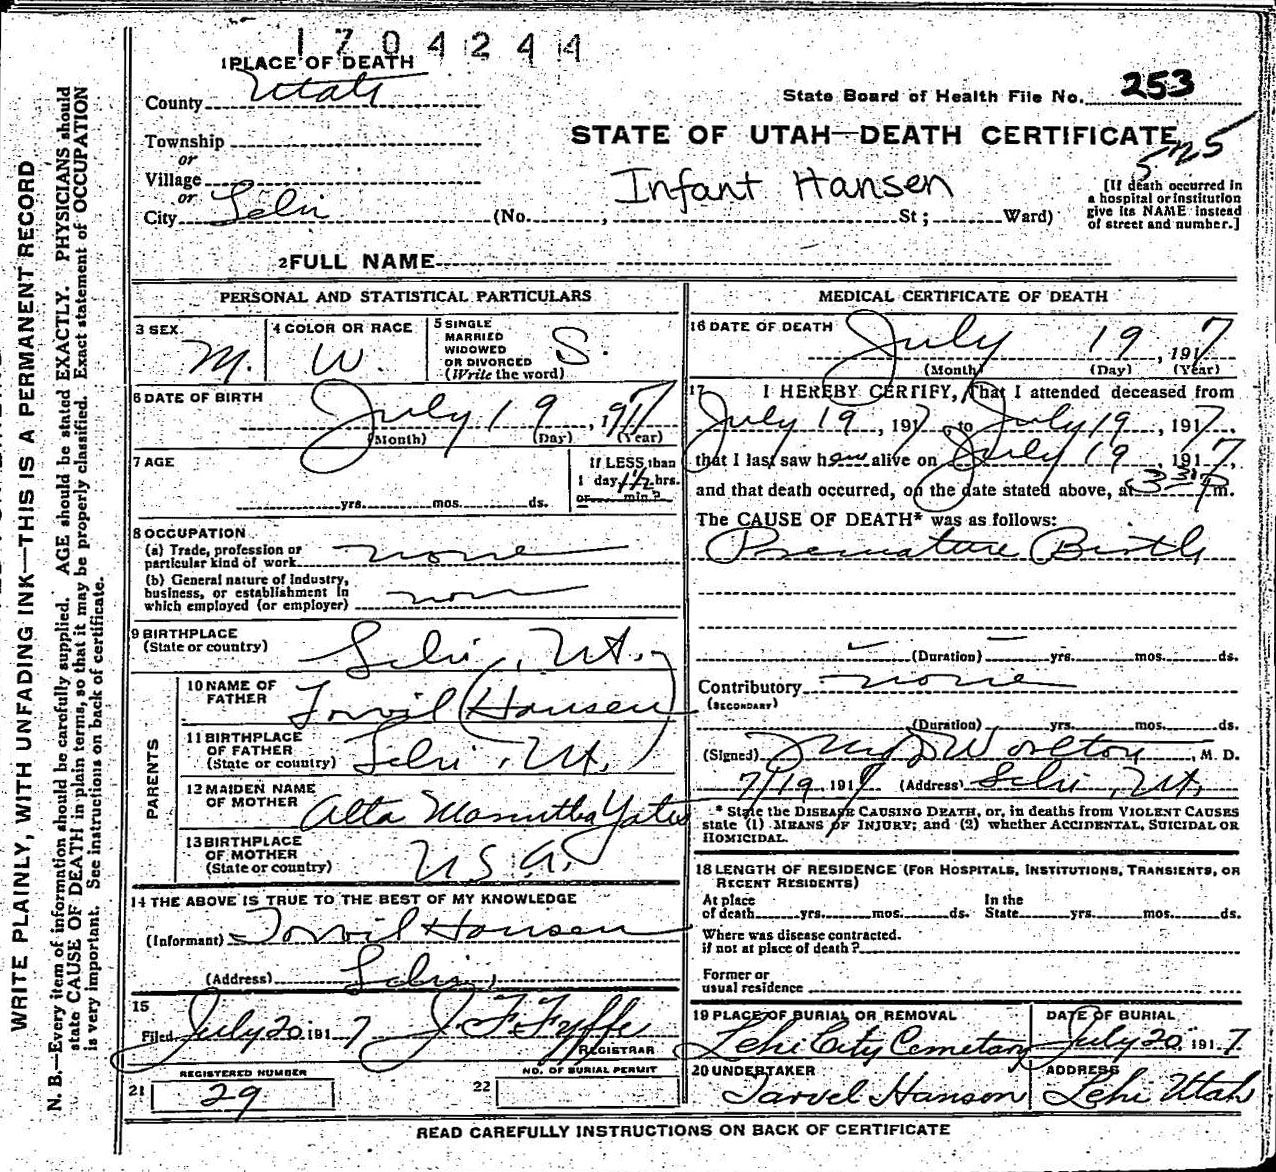 1704244
1 PLACE OF DEATH
County Utah
State Board of Health File No. 253
Township
or
Village
or
City Lehi
STATE OF UTAH—DEATH CERTIFICATE
525
Infant Hansen
(No. , St ; Ward)
[If death occurred in
a hospital or institution
give its NAME instead
of street and number.]
2 FULL NAME
PERSONAL AND STATISTICAL PARTICULARS
3 SEX
M.
4 COLOR OR RACE
W.
5 SINGLE
MARRIED
WIDOWED
OR DIVORCED
(Write the word)
S.
6 DATE OF BIRTH
July 19, 1917
(Month) (Day) (Year)
7 AGE
yrs. mos. ds.
If LESS than
1 day, 1 1/2 hrs.
or min.?
8 OCCUPATION
(a) Trade, profession or
particular kind of work none
(b) General nature of industry,
business, or establishment in
which employed (or employer) non
9 BIRTHPLACE
(State or country) Lehi, Ut.
PARENTS
10 NAME OF
FATHER Torvil Hansen
11 BIRTHPLACE
OF FATHER
(State or country) Lehi, Ut.
12 MAIDEN NAME
OF MOTHER Alta Yates
13 BIRTHPLACE
OF MOTHER
(State or country) U.S.A.
14 THE ABOVE IS TRUE TO THE BEST OF MY KNOWLEDGE
(Informant) Torvil Hansen
(Address) Lehi,
15
Filed July 20 1917 J. F. Fyffe
REGISTRAR
REGISTERED NUMBER
21 29
NO. OF BURIAL PERMIT
22
MEDICAL CERTIFICATE OF DEATH
16 DATE OF DEATH
July 19, 1917
(Month) (Day) (Year)
17 I HEREBY CERTIFY, That I attended deceased from
July 19, 1917, to July 19, 1917,
that I last saw him alive on July 19, 1917,
and that death occurred, on the date stated above, at m.
The CAUSE OF DEATH* was as follows:
Premature Birth
(Duration) yrs. mos. ds.
Contributory none
(SECONDARY)
(Duration) yrs. mos. ds.
(Signed) Worlton, M. D.
7/19 1917 (Address) Lehi, Ut.
* State the DISEASE CAUSING DEATH, or, in deaths from VIOLENT CAUSES
state (1) MEANS OF INJURY; and (2) whether ACCIDENTAL, SUICIDAL OR
HOMICIDAL.
18 LENGTH OF RESIDENCE (FOR HOSPITALS, INSTITUTIONS, TRANSIENTS, OR
RECENT RESIDENTS)
At place
of death yrs. mos. ds.
In the
State yrs. mos. ds.
Where was disease contracted.
if not at place of death?
Former or
usual residence
19 PLACE OF BURIAL OR REMOVAL
Lehi City Cemetary
DATE OF BURIAL
July 20, 1917
20 UNDERTAKER
Tarvel Hanson
ADDRESS
Lehi Utah
READ CAREFULLY INSTRUCTIONS ON BACK OF CERTIFICATE
WRITE PLAINLY, WITH UNFADING INK—THIS IS A PERMANENT RECORD
N. B.—Every item of information should be carefully supplied. AGE should be stated EXACTLY. PHYSICIANS should
state CAUSE OF DEATH in plain terms, so that it may be properly classified. Exact statement of OCCUPATION
is very important. See instructions on back of certificate.